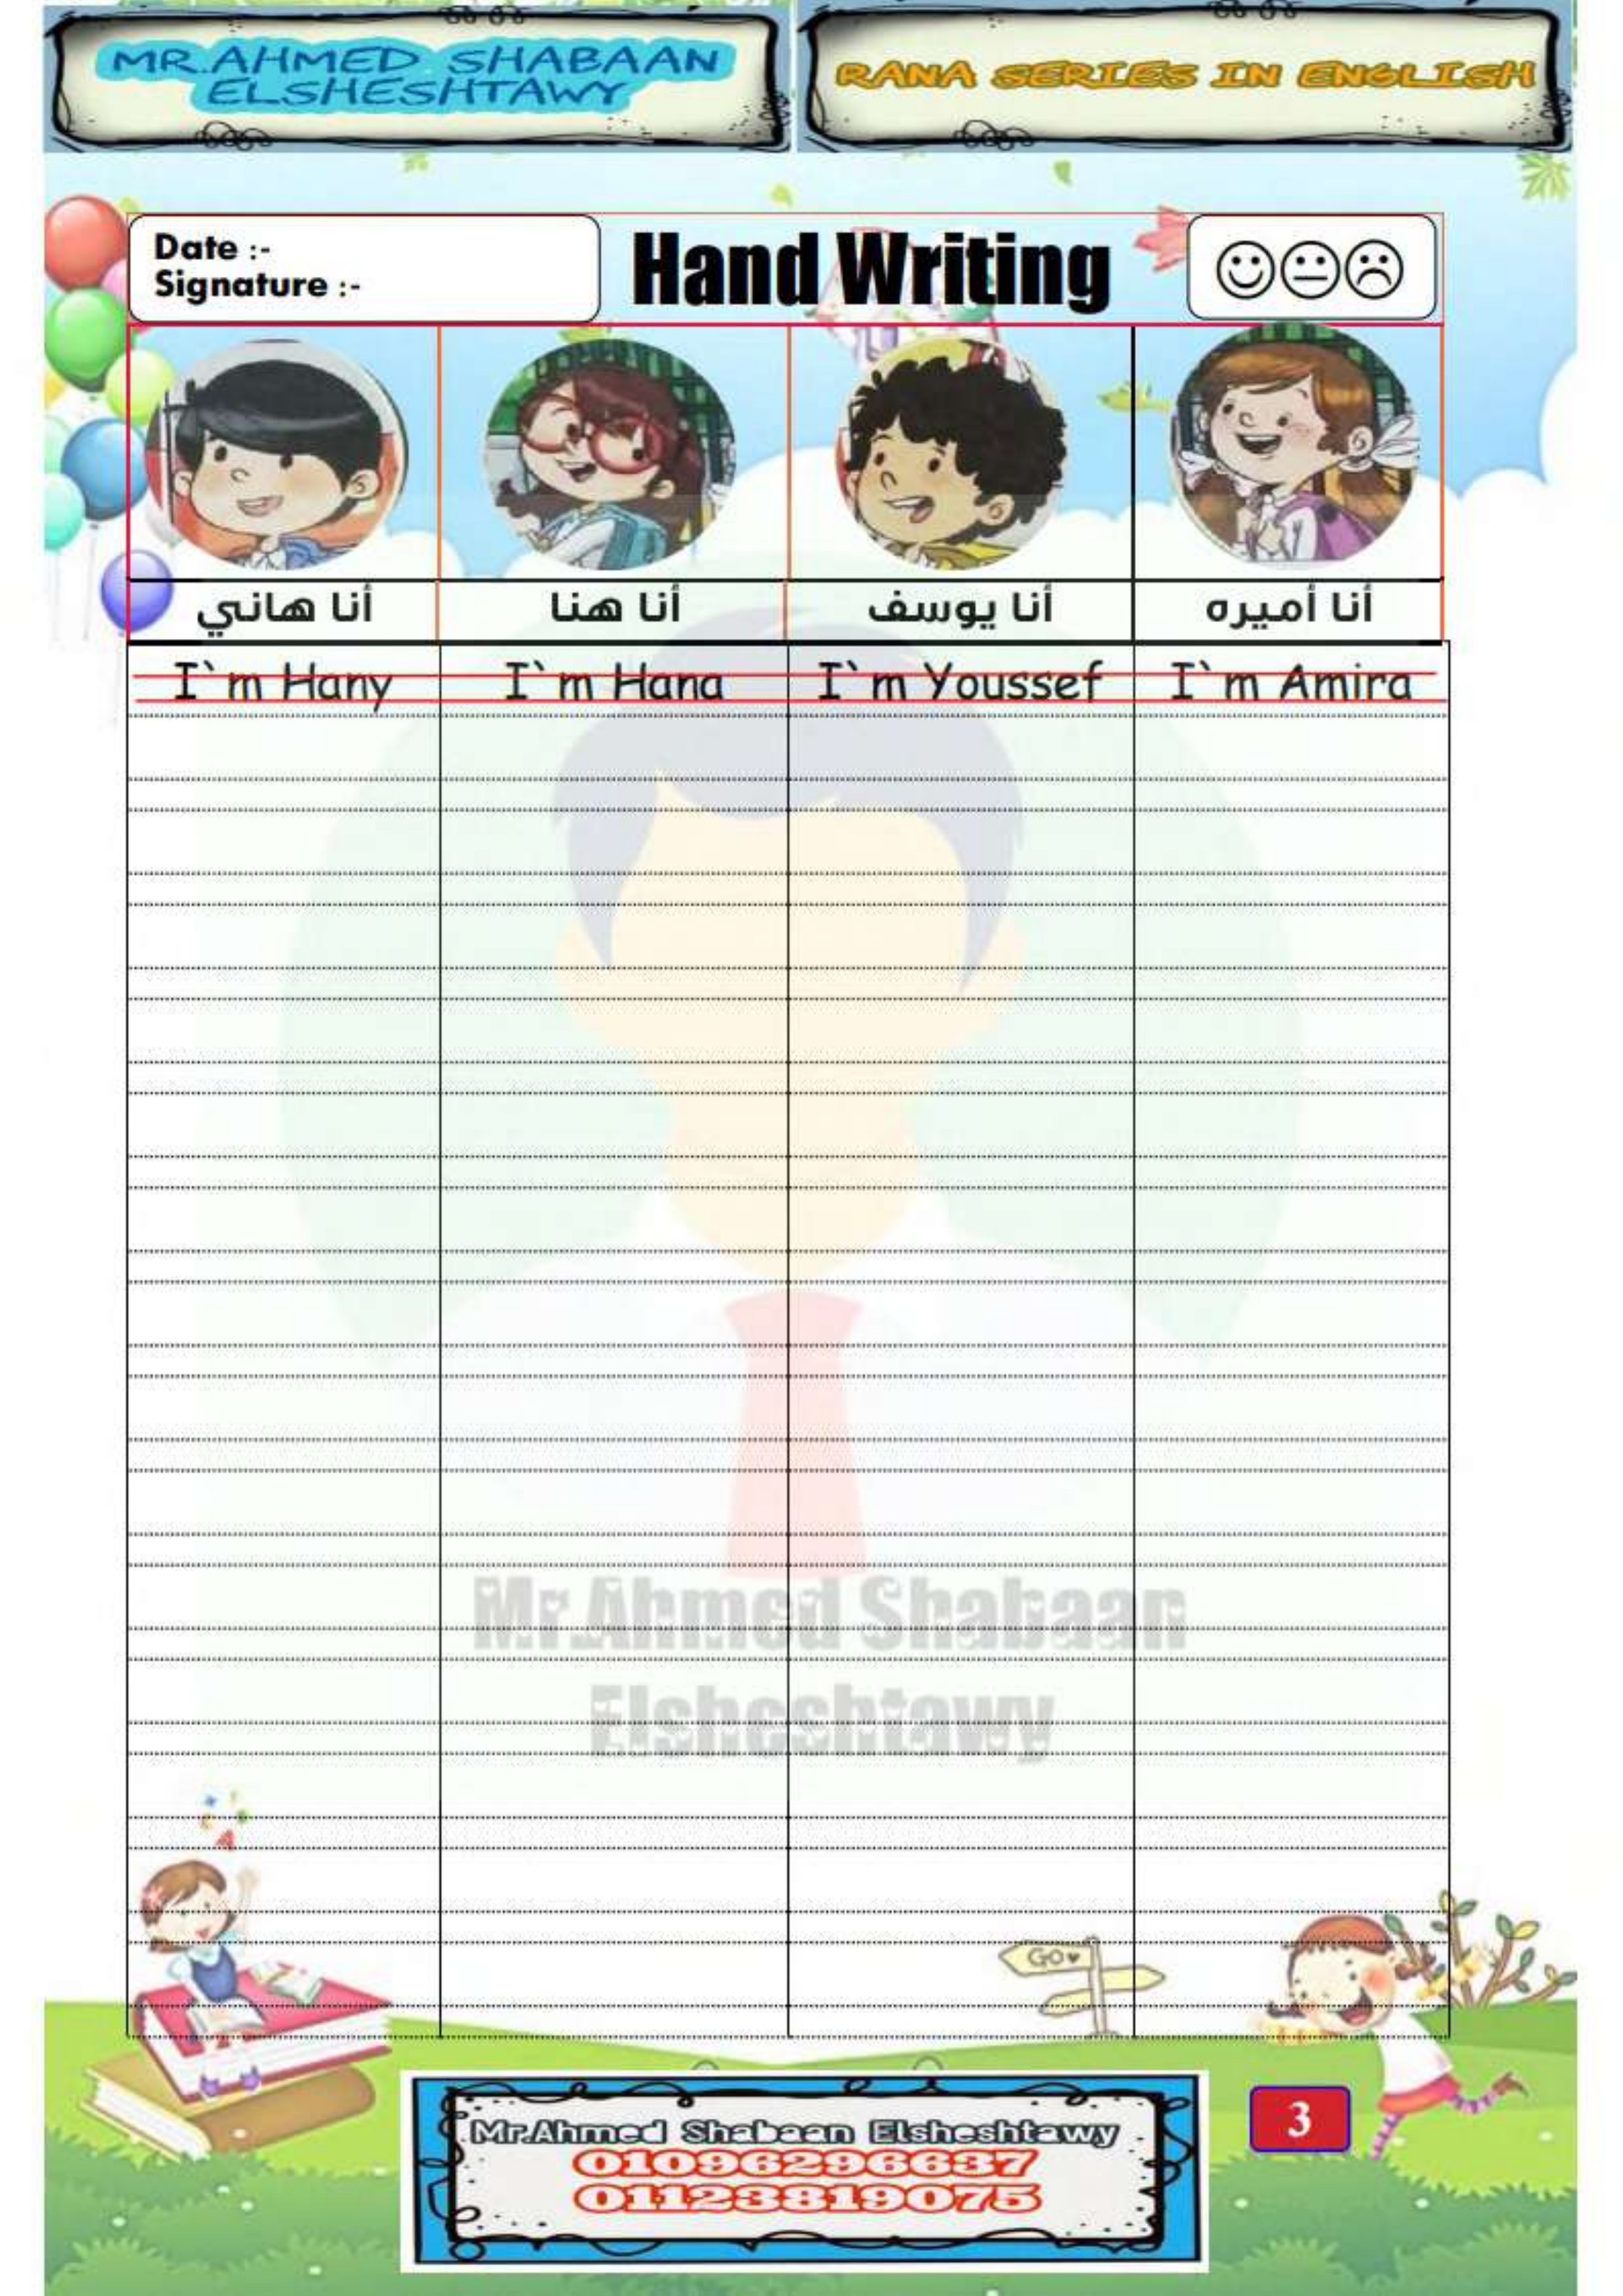 MR.AHMED SHABAAN
ELSHESHTAWY
RANA SERIES IN ENGLISH
Date :-
Signature :-
Hand Writing
أنا هاني
أنا هنا
أنا يوسف
أنا أميره
I`m Hany
I`m Hana
I`m Youssef
I`m Amira
Mr.Ahmed Shabaan
Elsheshtawy
GO
Mr.Ahmed Shabaan Elsheshtawy
01096296637
01123819075
3